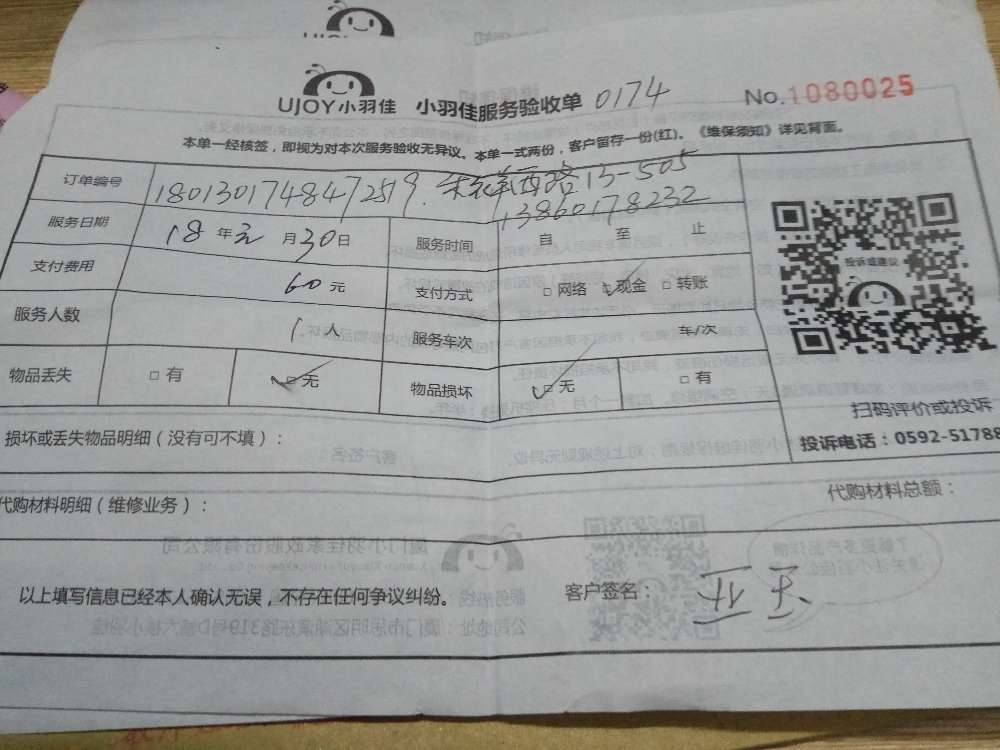 UJOY小羽佳 小羽佳服务验收单 0174 No.1080025
本单一经核签，即视为对本次服务验收无异议。本单一式两份，客户留存一份(红)。《维保须知》详见背面。
订单编号 1801301748472519. 13-505
13860178232
服务日期 18年元月30日 服务时间 自 至 止
支付费用 60元 支付方式 □网络 ☑现金 □转账
服务人数 1人 服务车次 车/次
物品丢失 □有 ☑无 物品损坏 ☑无 □有
投诉或建议
扫码评价或投诉
投诉电话：0592-51788
损坏或丢失物品明细（没有可不填）：
代购材料明细（维修业务）： 代购材料总额：
以上填写信息已经本人确认无误，不存在任何争议纠纷。 客户签名：